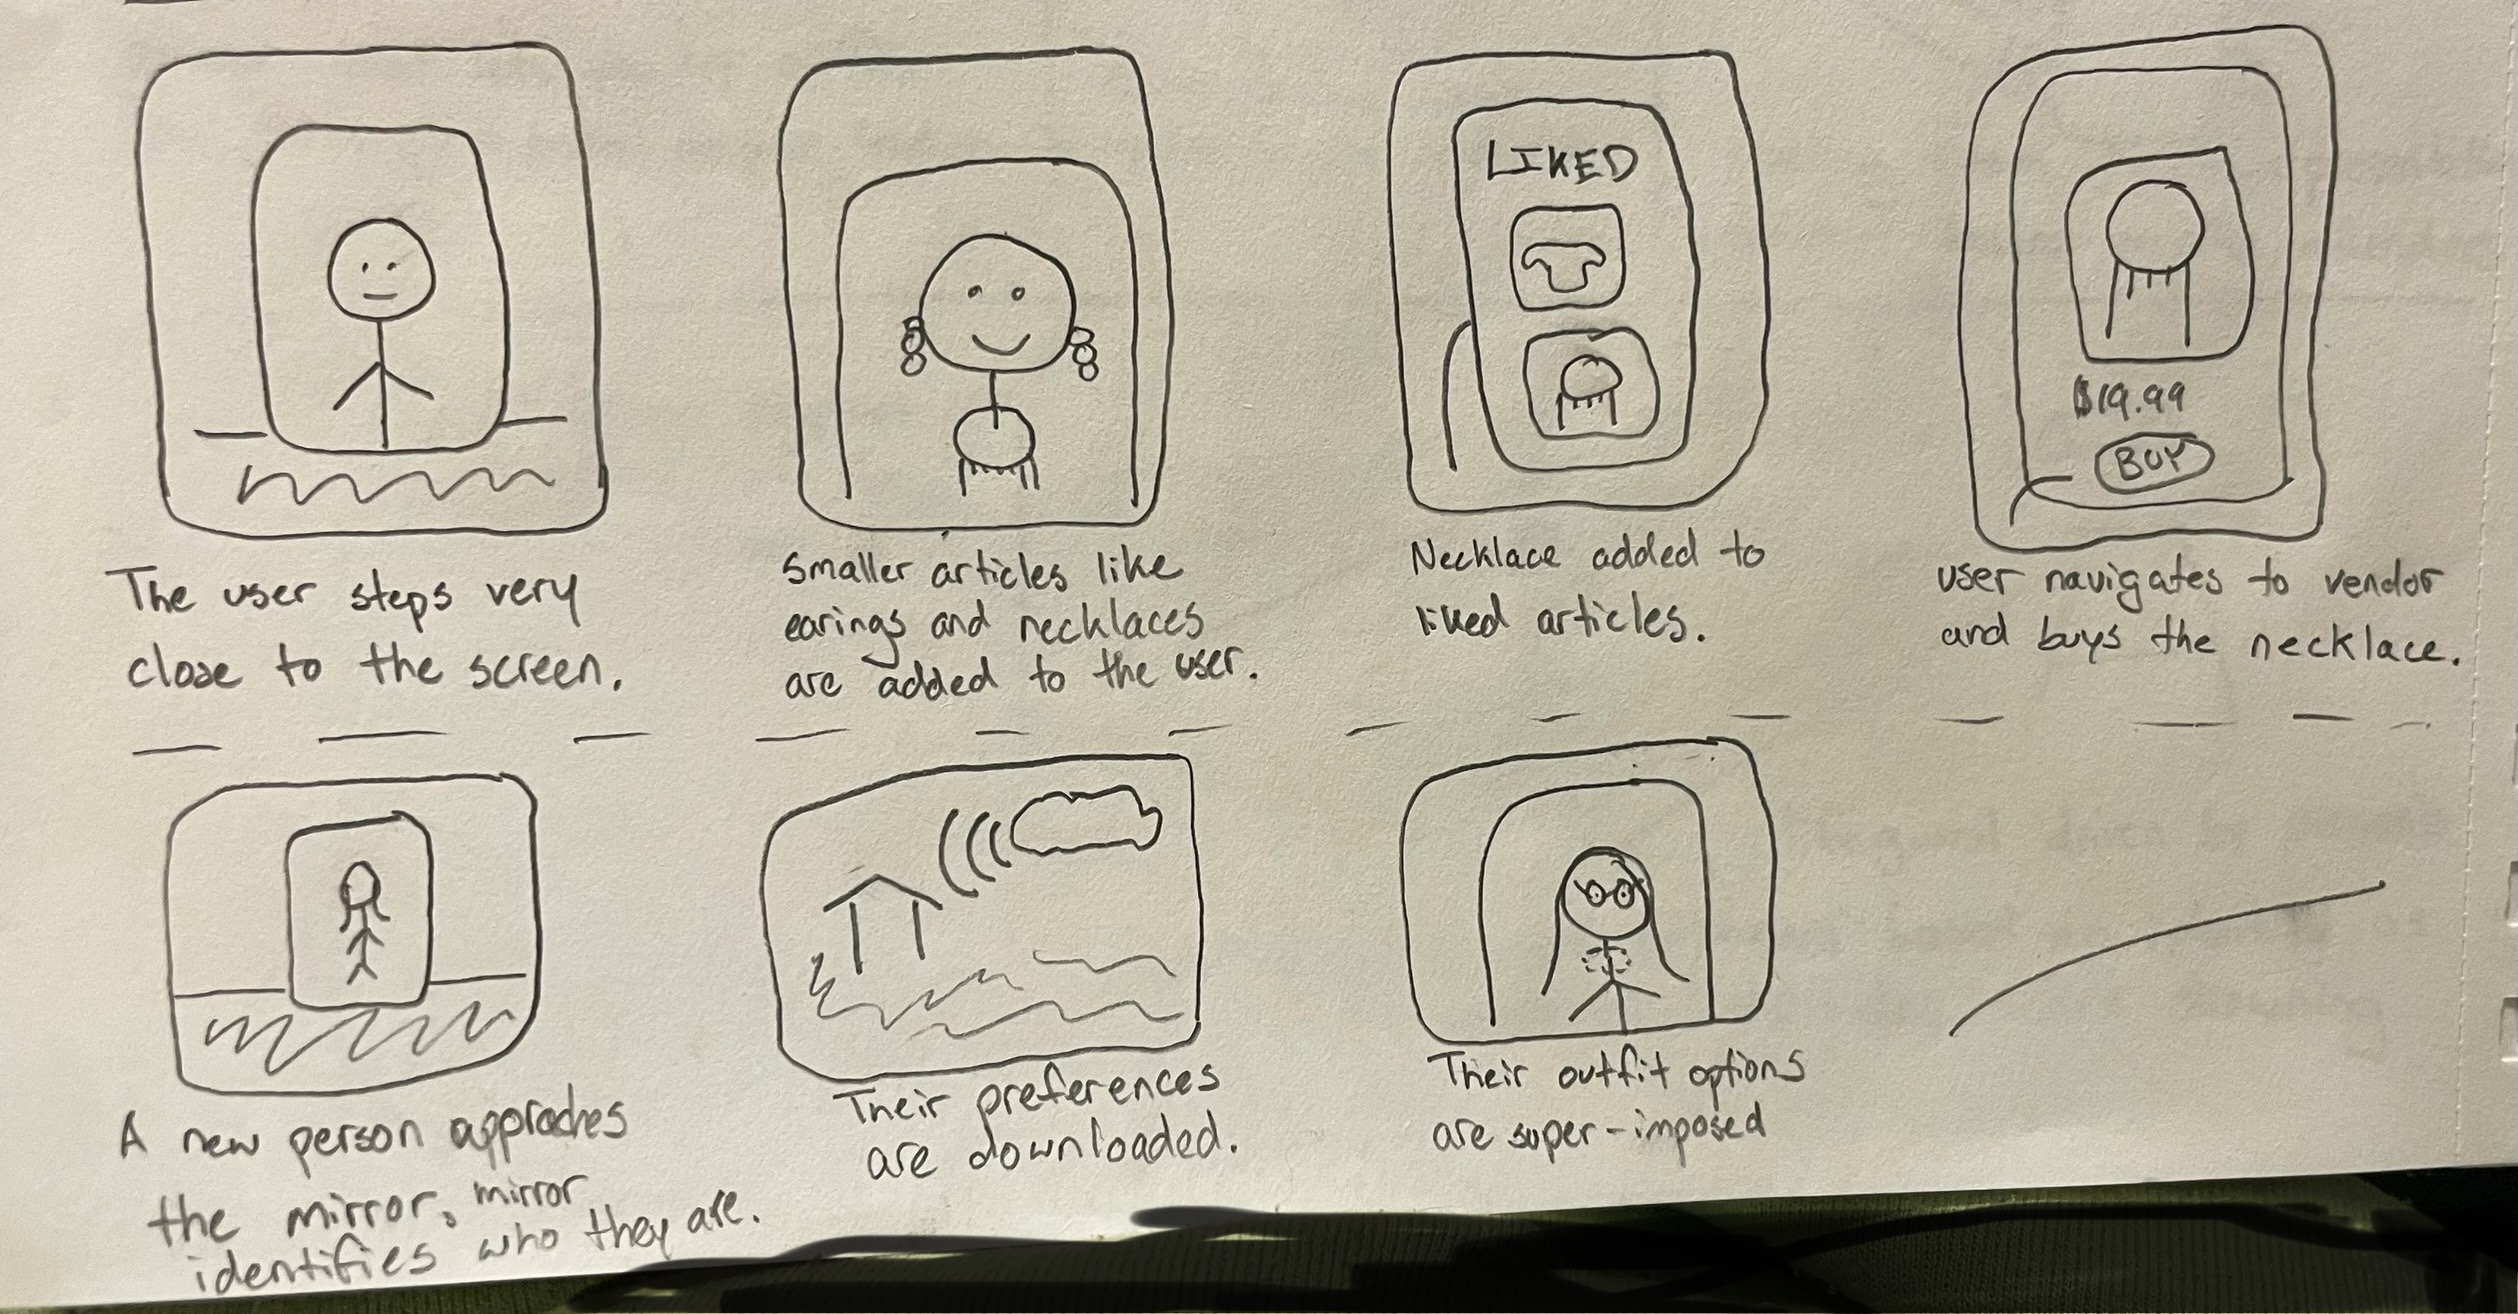 The user steps very
close to the screen.
Smaller articles like
earings and necklaces
are added to the user.
LIKED
Necklace added to
liked articles.
$19.99
BUY
user navigates to vendor
and buys the necklace.
A new person approaches
the mirror, mirror
identifies who they are.
Their preferences
are downloaded.
Their outfit options
are super-imposed